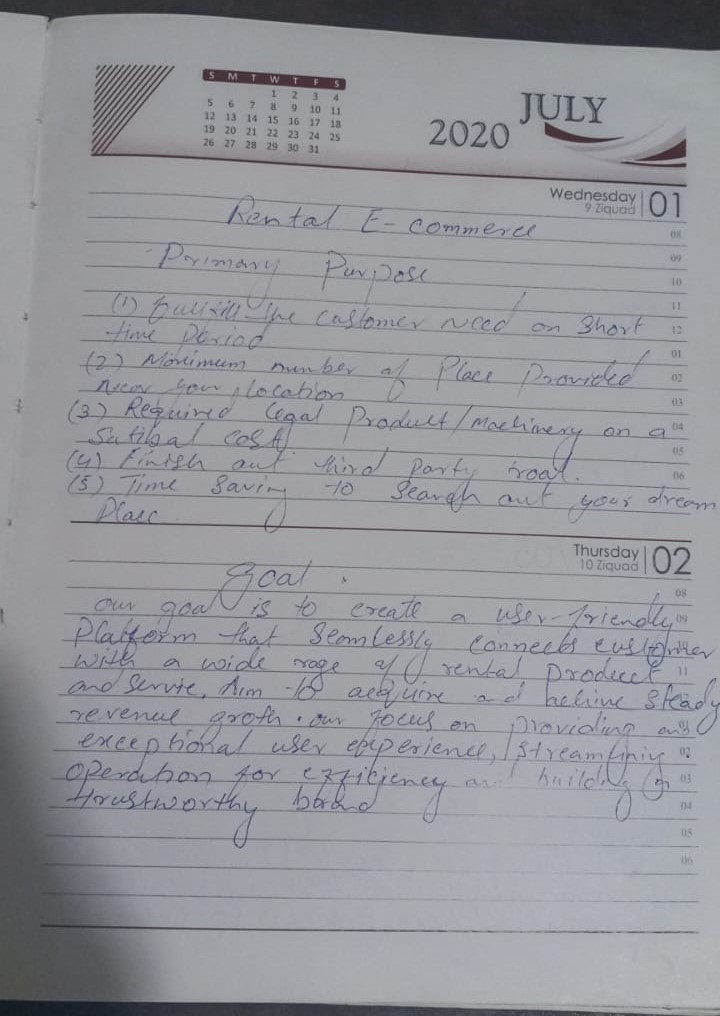 S M T W T F S
1 2 3 4
5 6 7 8 9 10 11
12 13 14 15 16 17 18
19 20 21 22 23 24 25
26 27 28 29 30 31
2020 JULY
Wednesday 01
9 Ziquad
Rental E-commerce
08
09
Primary Purpose
10
11
(1) the customer need on short
12
time period
01
(2) number of Place Provided
02
near your location
03
(3) Required legal Product/Machinery on a
04
cost
05
(4) Finish out third party
06
(5) Time saving to search out your dream
Place
Thursday 02
10 Ziquad
Goal.
08
our goal is to create a user-friendly
09
Platform that seamlessly connects customer
with a wide rage of rental product
11
and servise, Aim to acquire and steady
revenue groth. our focus on providing
01
exceptional user experience,
02
operation for efficiency and building
03
trustworthy
04
05
06